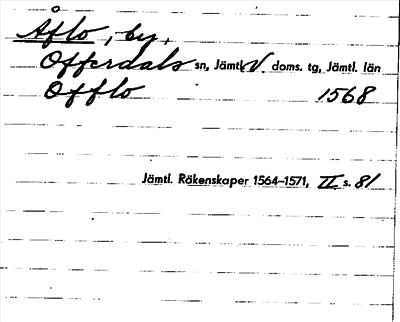 Åflo, by,
Offerdals sn, Jämtl. V. doms. tg, Jämtl. län
Offlo 1568
Jämtl. Räkenskaper 1564–1571, II s. 81